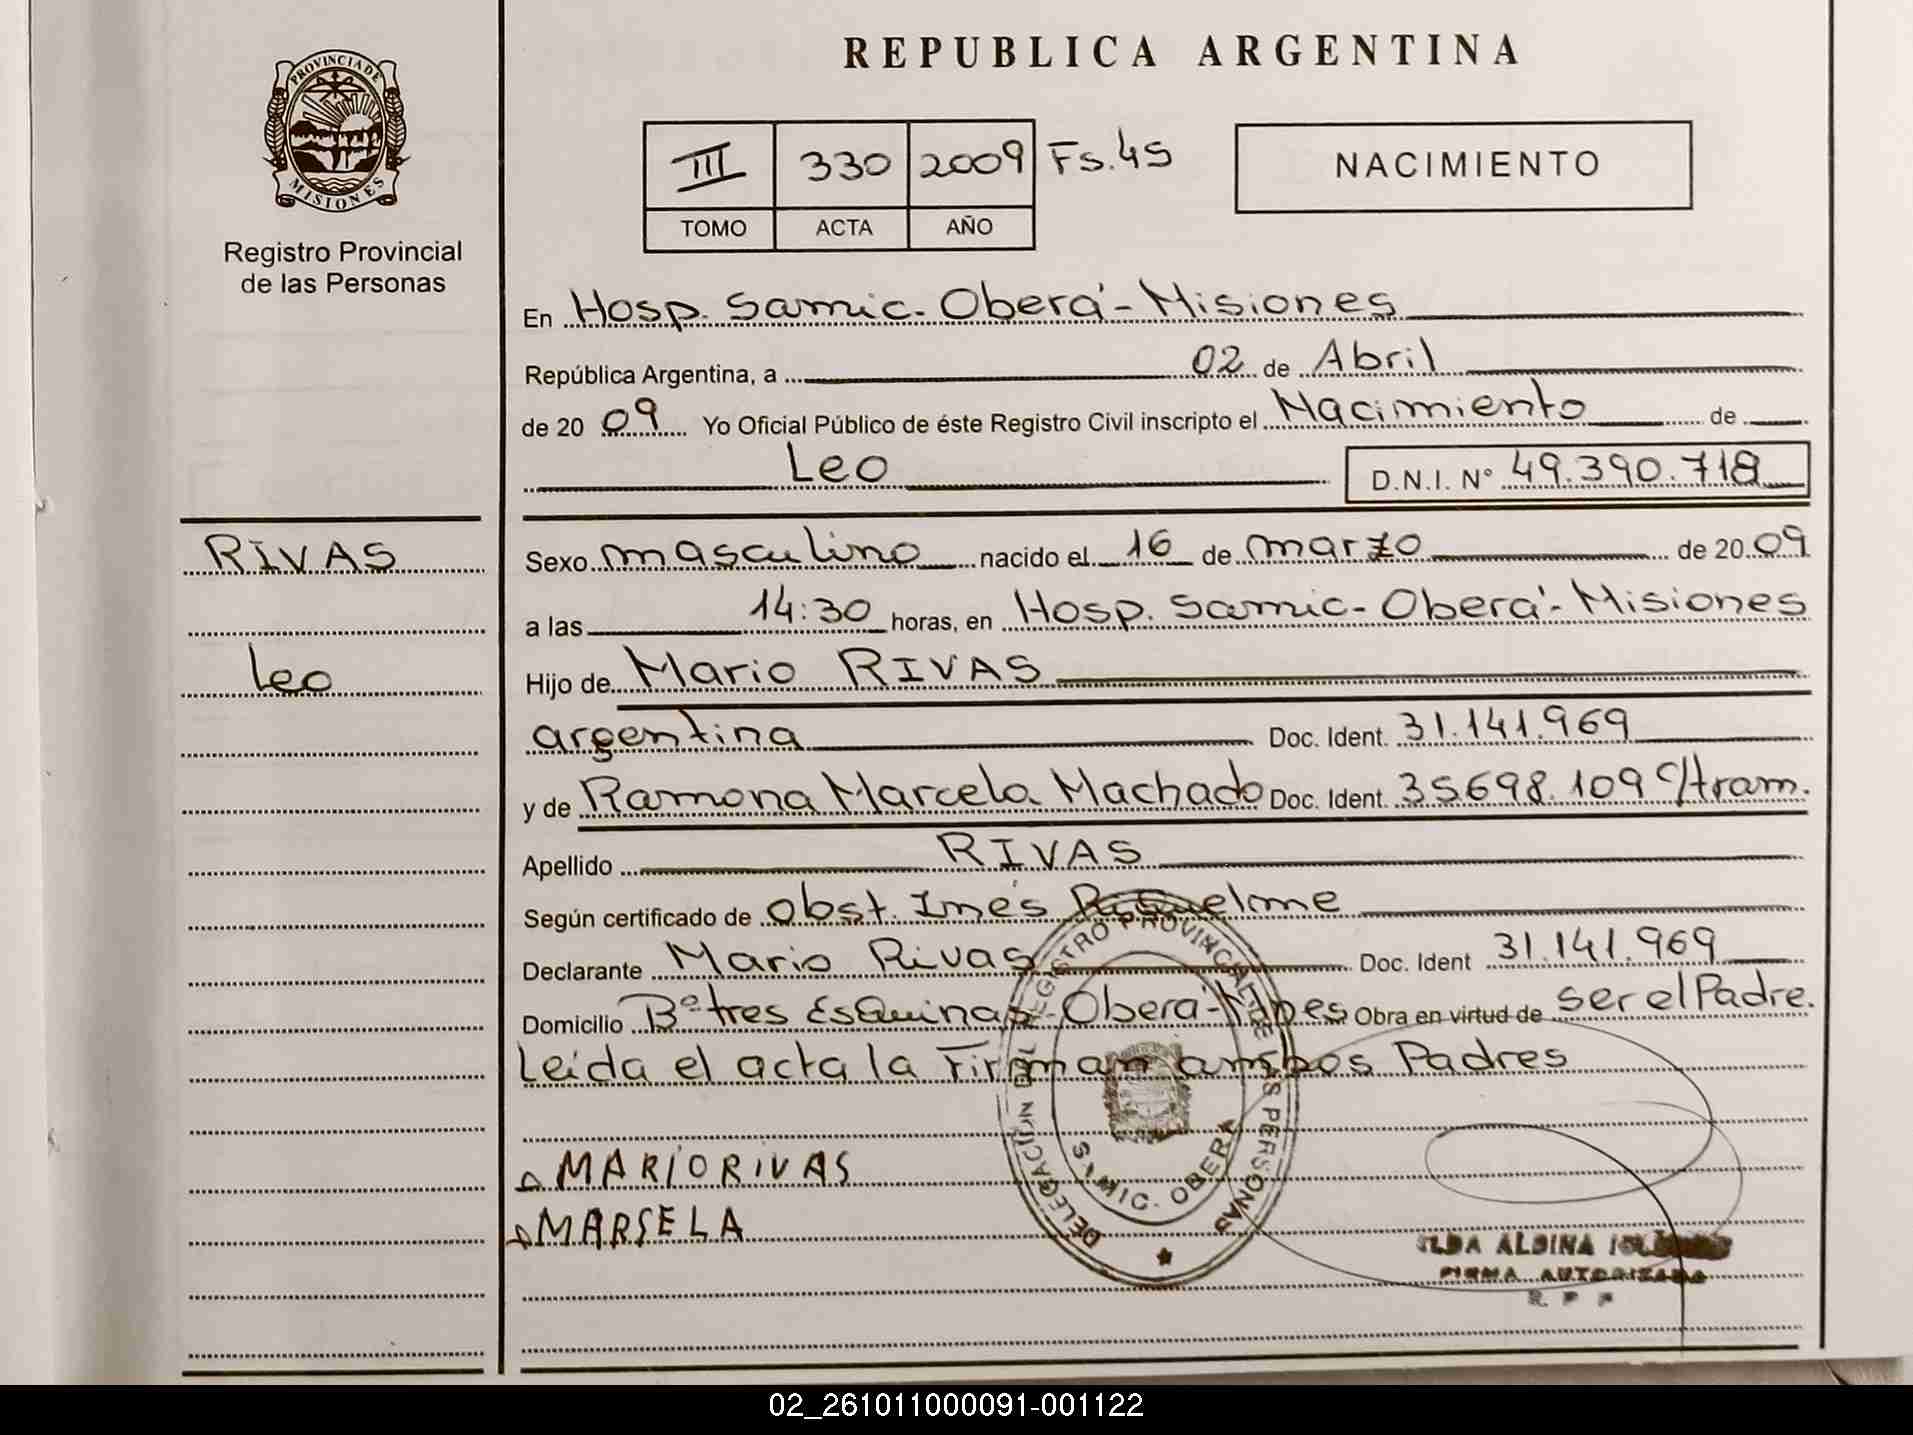 REPUBLICA ARGENTINA
PROVINCIA DE
MISIONES
Registro Provincial
de las Personas
III 330 2009 Fs. 45
TOMO ACTA AÑO
NACIMIENTO
En Hosp. Samic. Oberá - Misiones
República Argentina, a 02 de Abril
de 2009 Yo Oficial Público de éste Registro Civil inscripto el Nacimiento de
Leo D.N.I. N° 49.390.718
RIVAS
Leo
Sexo masculino nacido el 16 de marzo de 2009
a las 14:30 horas, en Hosp. Samic - Oberá - Misiones
Hijo de Mario RIVAS
argentina Doc. Ident. 31.141.969
y de Ramona Marcela Machado Doc. Ident. 35698.109 c/tram.
Apellido RIVAS
Según certificado de obst. Inés Riquelme
Declarante Mario Rivas Doc. Ident 31.141.969
Domicilio B° tres Esquinas - Oberá - Obra en virtud de ser el Padre.
Leida el acta la Firman ambos Padres
MARIO RIVAS
MARSELA
DELEGACION DEL REGISTRO PROVINCIAL DE LAS PERSONAS
SAMIC. OBERA
ILDA ALBINA
FIRMA AUTORIZADA
R. P. P.
02_261011000091-001122